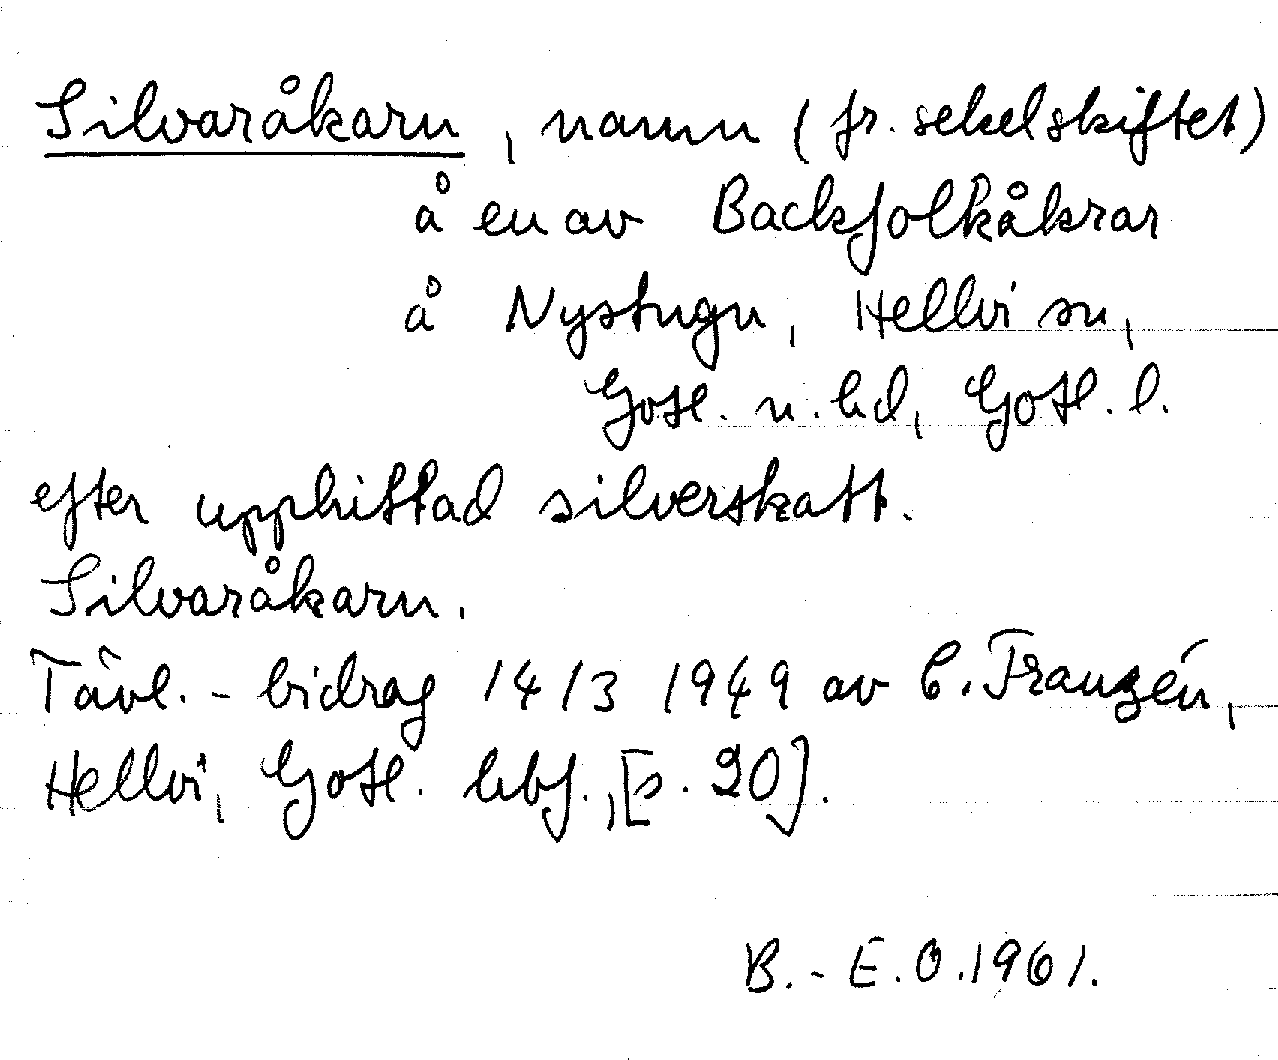 Silvaråkarn, namn (fr. sekelskiftet)
å en av Backfolkåkrar
å Nystugu, Hellvi sn,
Gotl. n. hd, Gotl. l.
efter upphittad silverskatt.
Silvaråkarn.
Tävl.-bidrag 14/3 1949 av C. Franzén,
Hellvi, Gotl. hbf., [s. 20].
B.-E.O.1961.